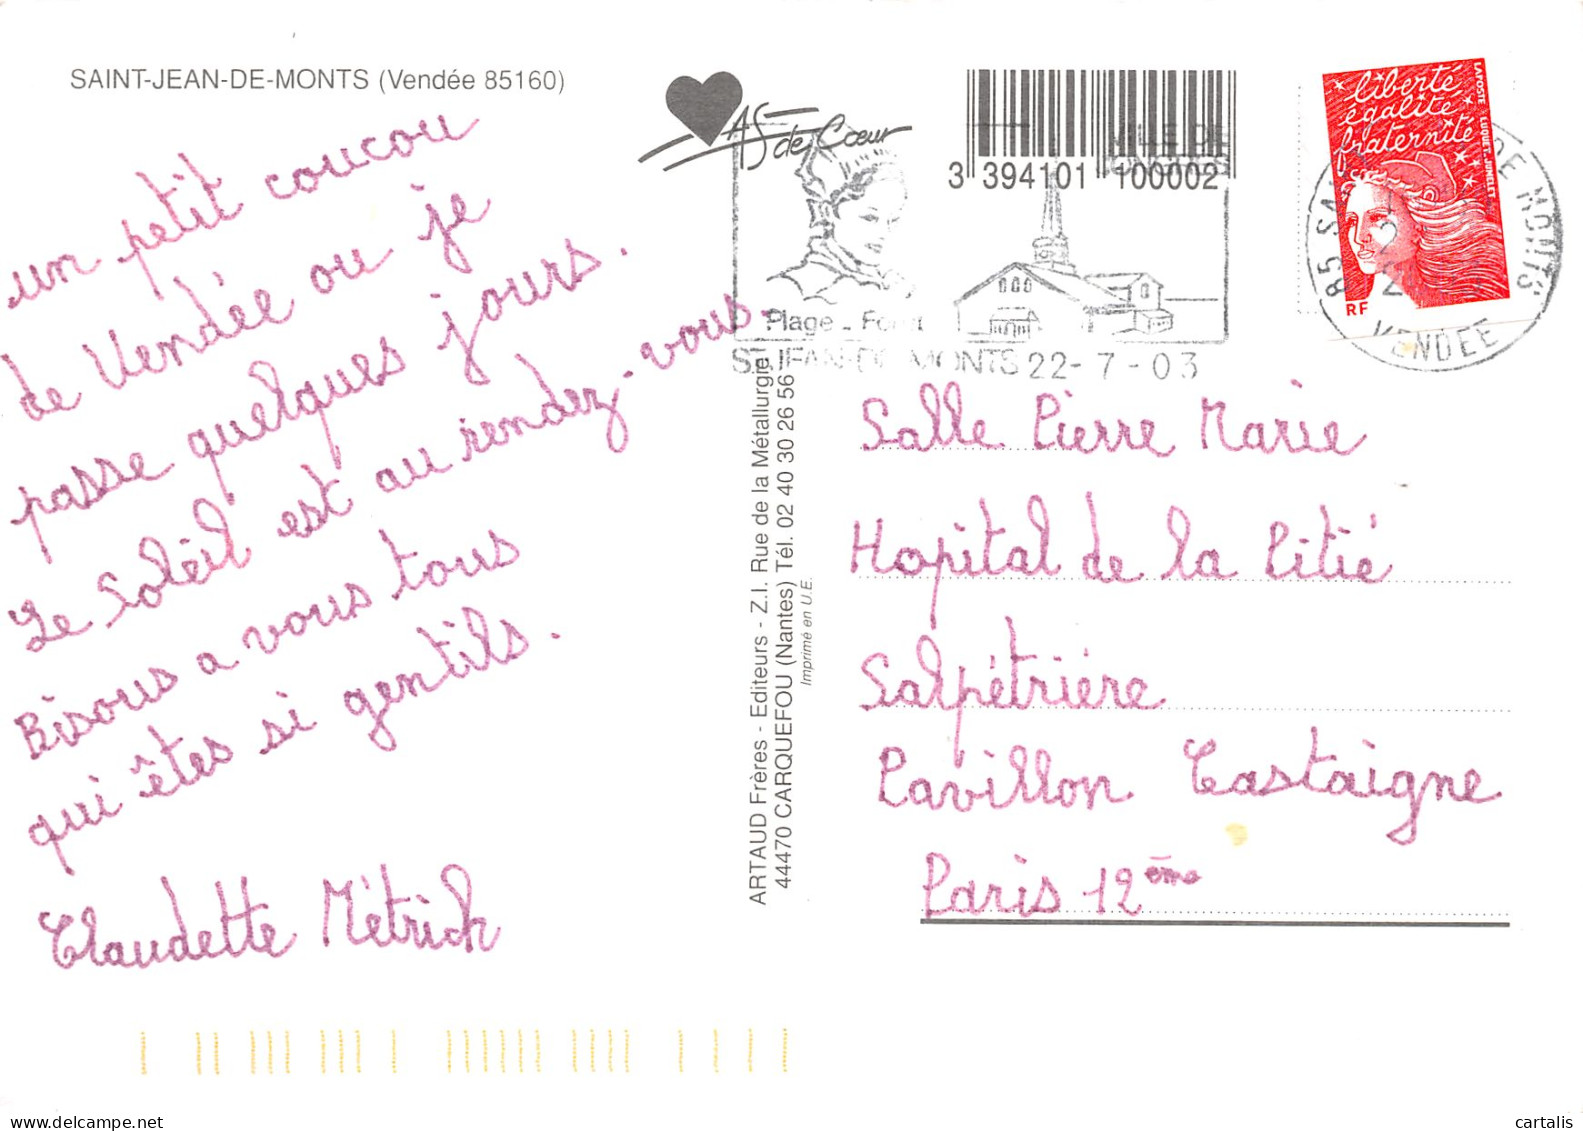 SAINT-JEAN-DE-MONTS (Vendée 85160)
un petit coucou
de Vendée ou je
passe quelques jours.
Le Soleil est au rendez-vous.
Bisous a vous tous
qui êtes si gentils.
Claudette Métrich
AS de Cœur
3 394101 100002
VILLE DE
Plage - Forêt
ST JEAN-DE-MONTS 22-7-03
liberté
égalité
fraternité
LA POSTE LUQUET-JUMELET
RF
DE MONTS
VENDEE
ARTAUD Frères - Editeurs - Z.I. Rue de la Métallurgie
44470 CARQUEFOU (Nantes) Tél. 02 40 30 26 56
Imprimé en U.E.
Salle Pierre Marie
Hopital de la Pitié
Salpétrière
Pavillon Castaigne
Paris 12ème
delcampe.net
cartalis